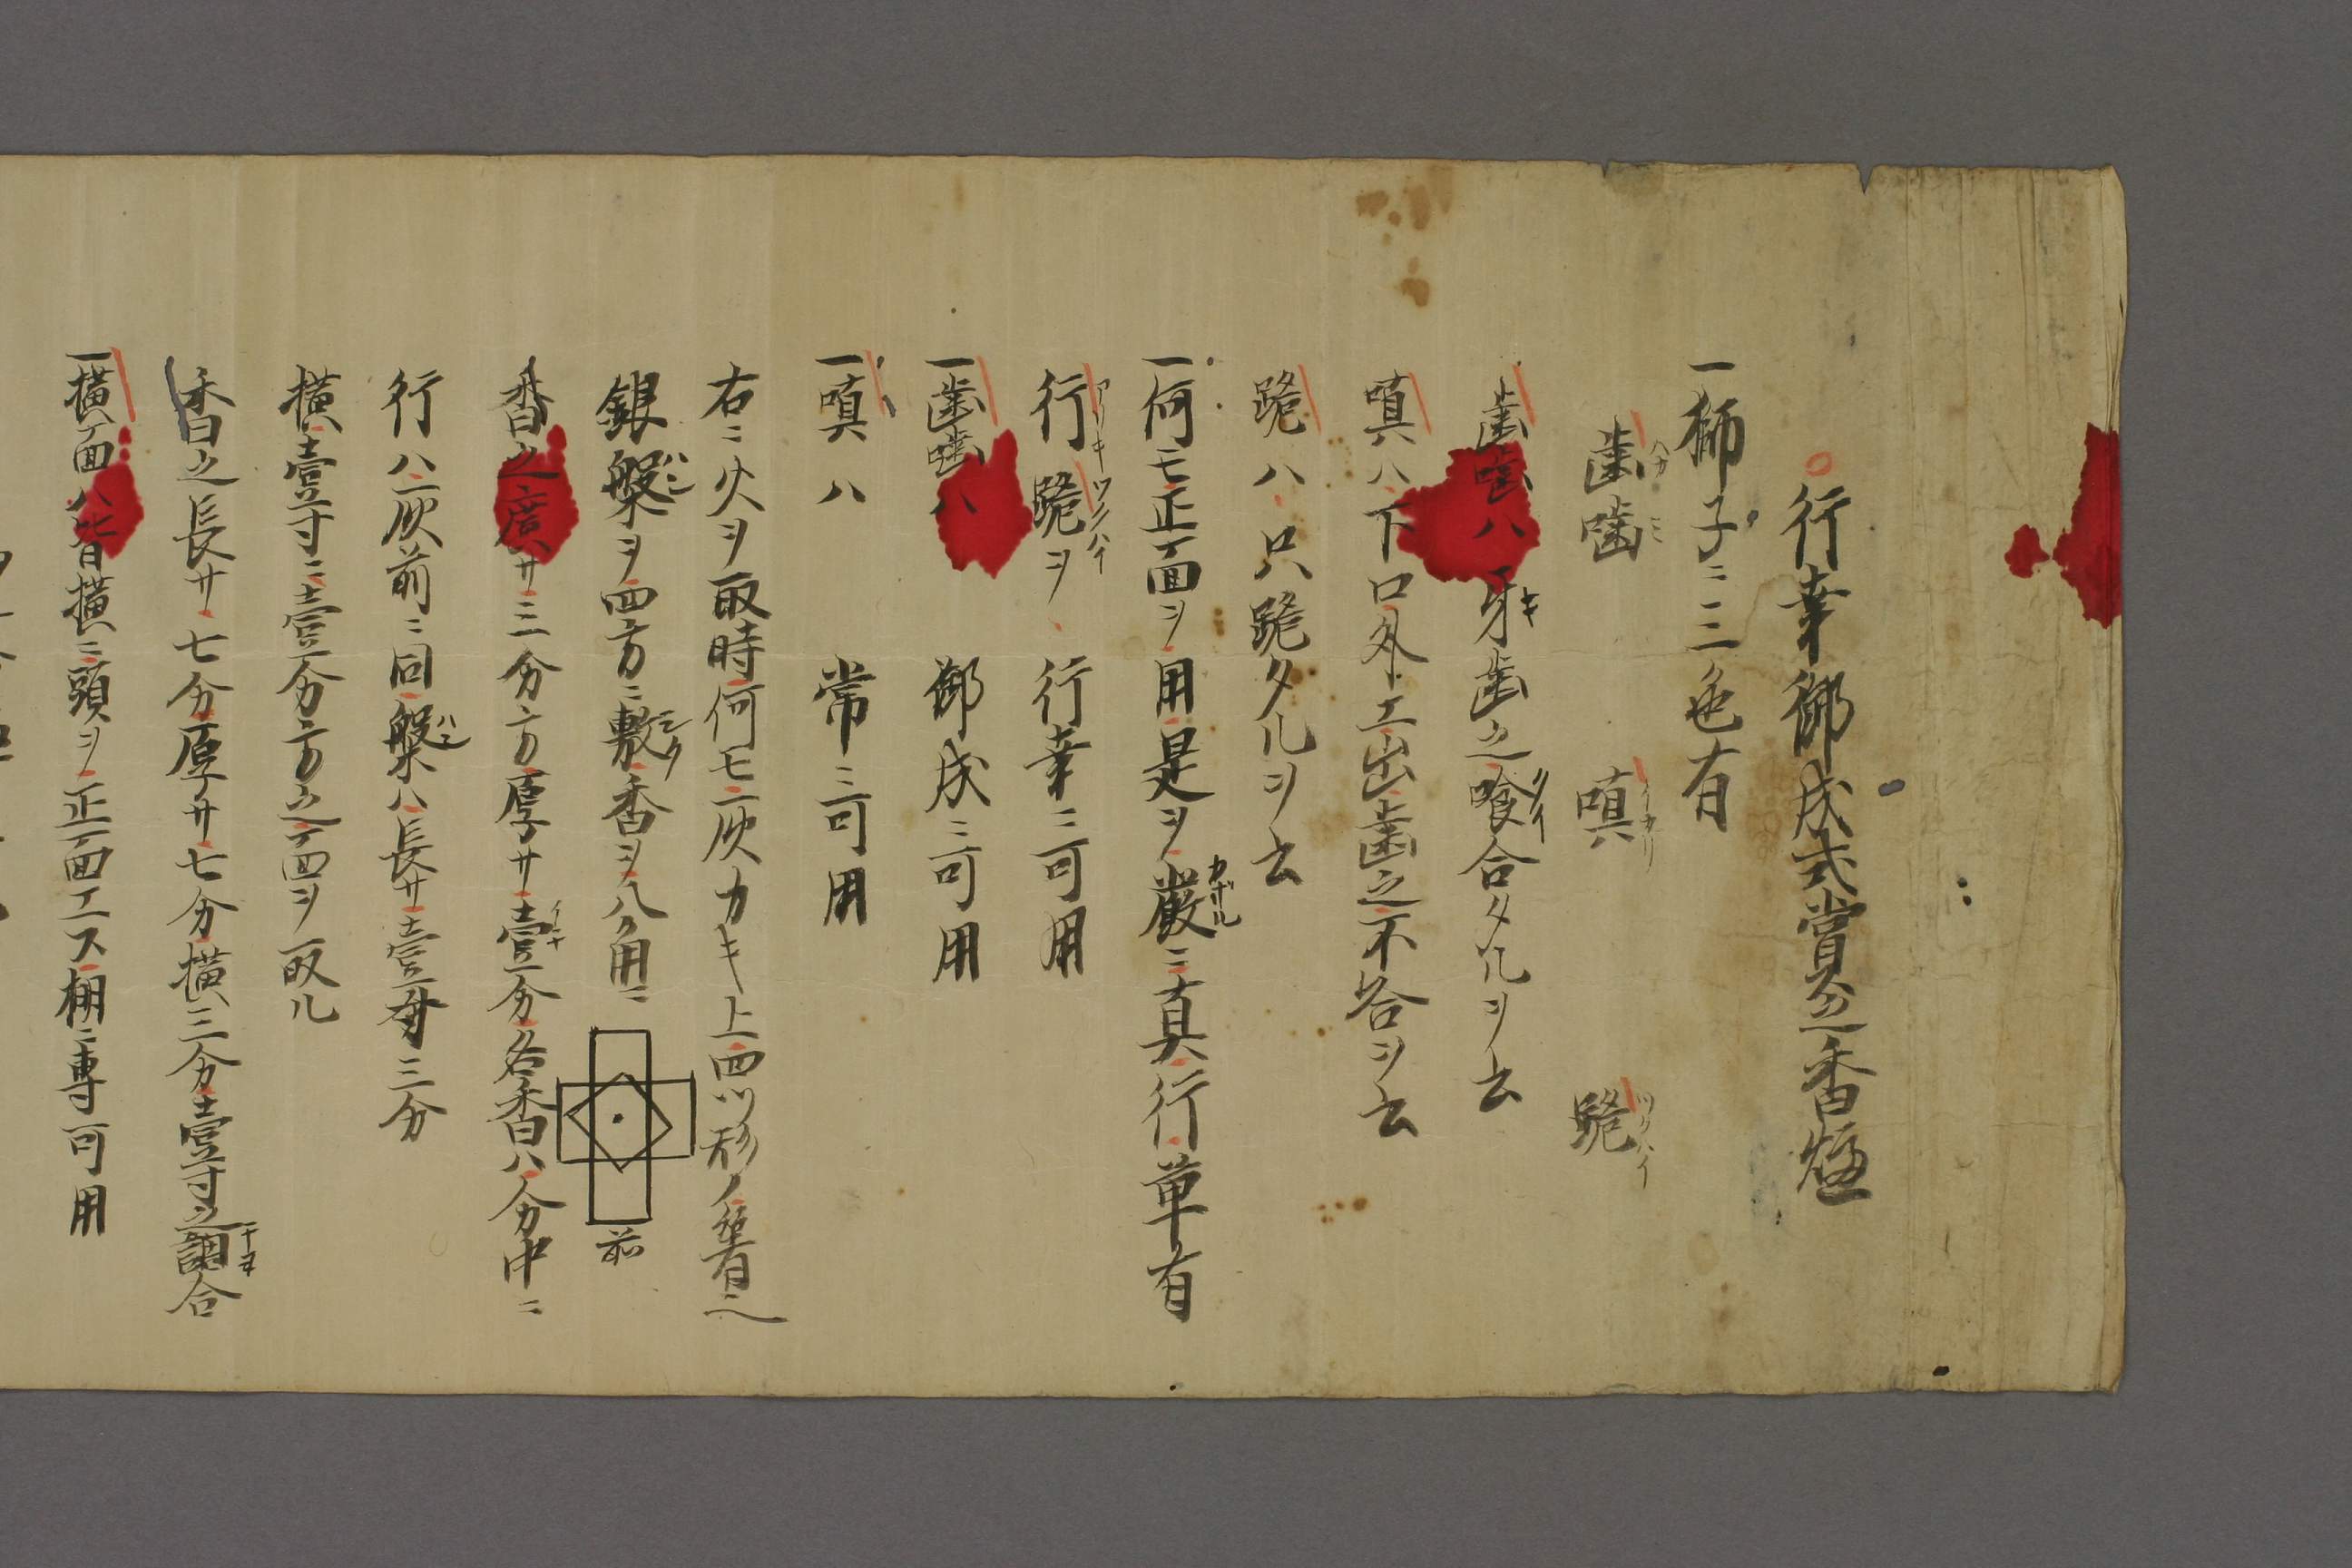 行幸御成式賞之香炉
一獅子ニ三色有
歯噛 嗔 跪
歯噛ハ牙歯之喰合タルヲ云
嗔ハ下口外エ出歯之不合ヲ云
跪ハ只跪タルヲ云
一何モ正面ヲ用是ヲ厳ニ真行草有
行跪ヲ 行幸ニ可用
一歯噛ハ 御成ニ可用
一嗔ハ 常ニ可用
右ニ火ヲ取時何モ灰カキ上四ツ形ノ筋有之
銀盤ヲ四方ニ敷香ヲ八角ニ
前
香之廣サ三分方厚サ壹分名香ハ分中ニ
行ハ灰前ニ同盤ハ長サ壹寸三分
横壹寸ニ壹分方之面ヲ取ル
香之長サ七分厚サ七分横三分壹寸之調合
一横面ハ皆横ニ頭ヲ正面エス棚ニ専可用